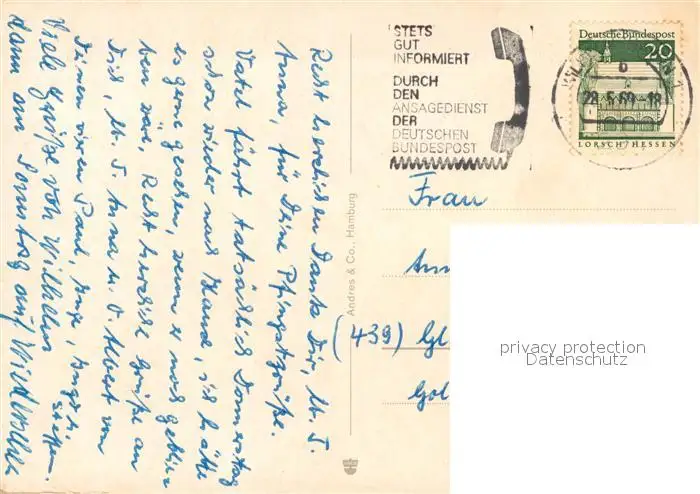 STETS
GUT
INFORMIERT
DURCH
DEN
ANSAGEDIENST
DER
DEUTSCHEN
BUNDESPOST
Deutsche Bundespost
20
LORSCH / HESSEN
28.5.69-18
b
Recht herzlichen Dank Dir, lb. T.
Anna, für Deine Pfingstgrüße.
Vater fährt tatsächlich Donnerstag
schon wieder nach Hause, ich hätte
es gerne gesehen, wenn er noch geblie
ben wäre. Recht herzliche Grüße an
Dich, lb. T. Anna u. O. Albert von
Deinen vieren Paul, Inge,
Viele Grüße von Wilhelm
dann am Sonntag auf Wiedersehen
Andres & Co., Hamburg
Frau
Ann
(439) Gl
Gol
privacy protection
Datenschutz